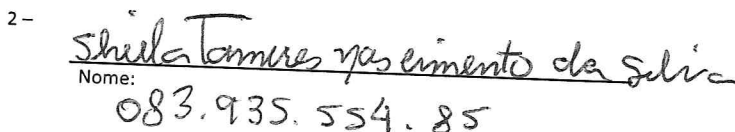 2-
Sheila Tamires nascimento da Silva
Nome:
083.935.554.85